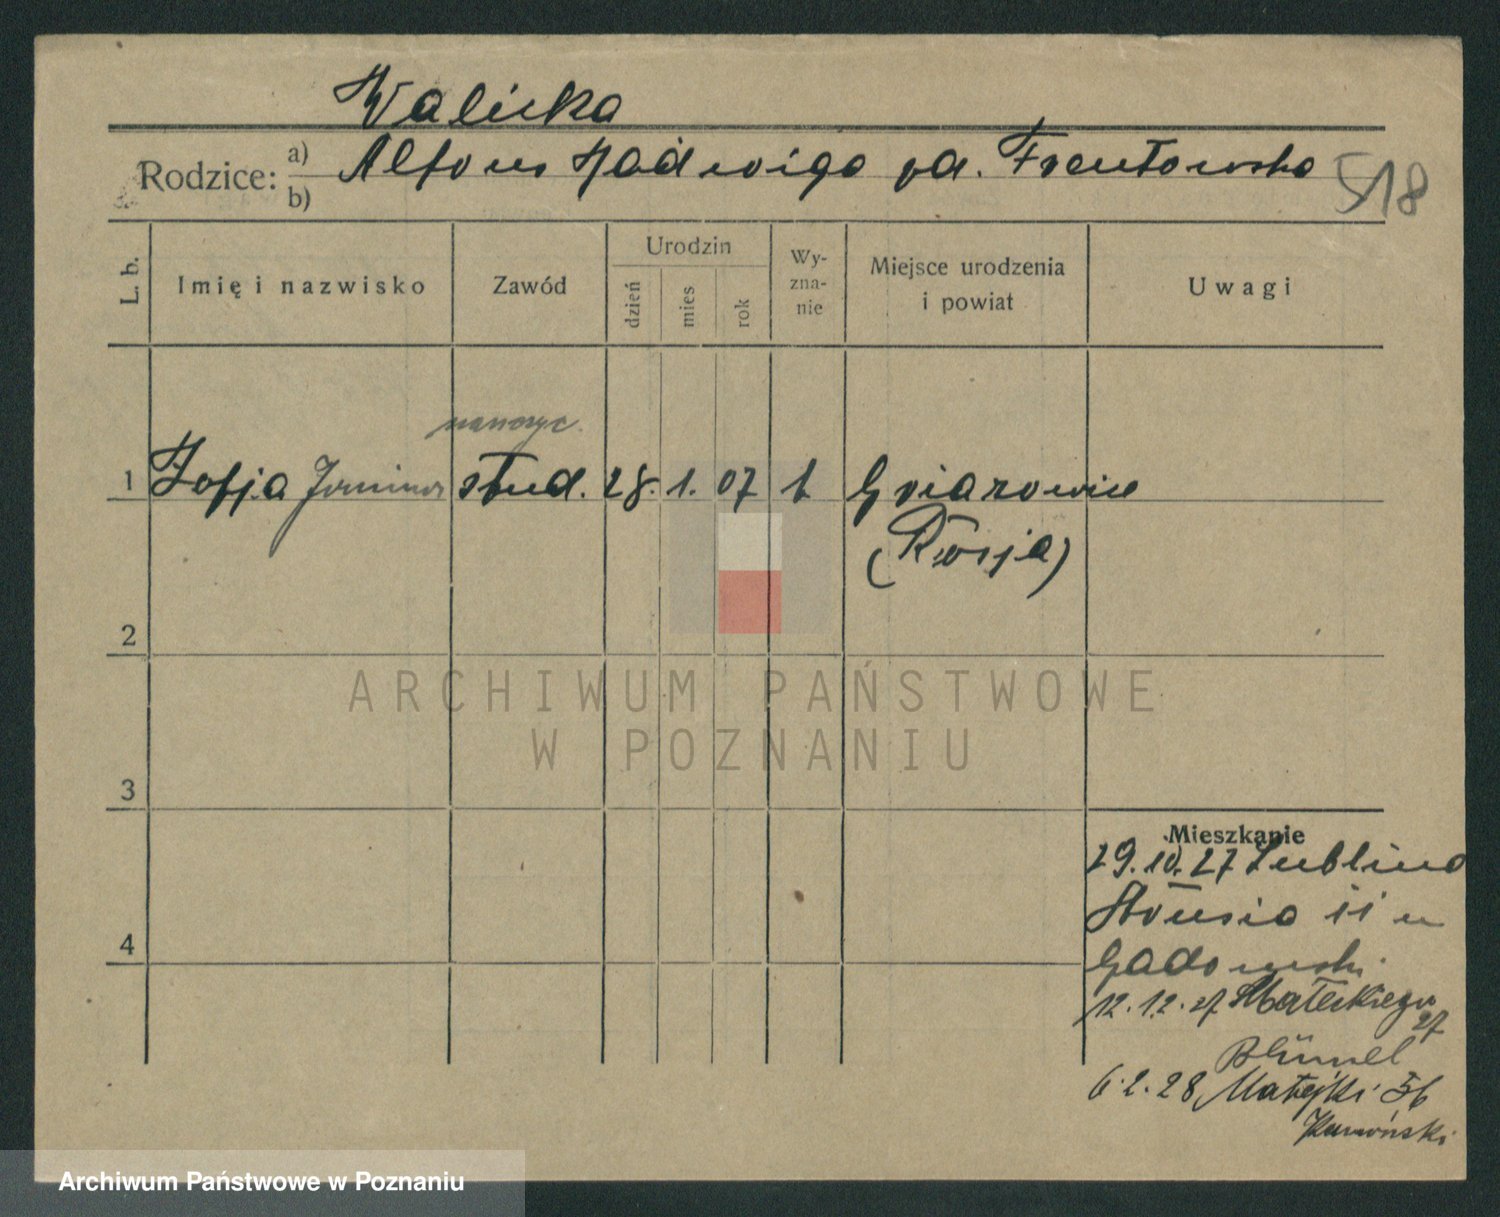 Walicka
Rodzice: a) Alfons Jadwiga zd. Trentowska 518
b)
L. b. Imię i nazwisko Zawód Urodzin dzień mies rok Wyznanie Miejsce urodzenia i powiat Uwagi
1 Zofja Janina stud. 28. 1. 07 k
(Rosja)
2
ARCHIWUM PAŃSTWOWE
W POZNANIU
3
Mieszkanie
29.10.27 Lublina
4
12.12.27 Małeckiego
27
6.2.28 Matejki 56
Archiwum Państwowe w Poznaniu